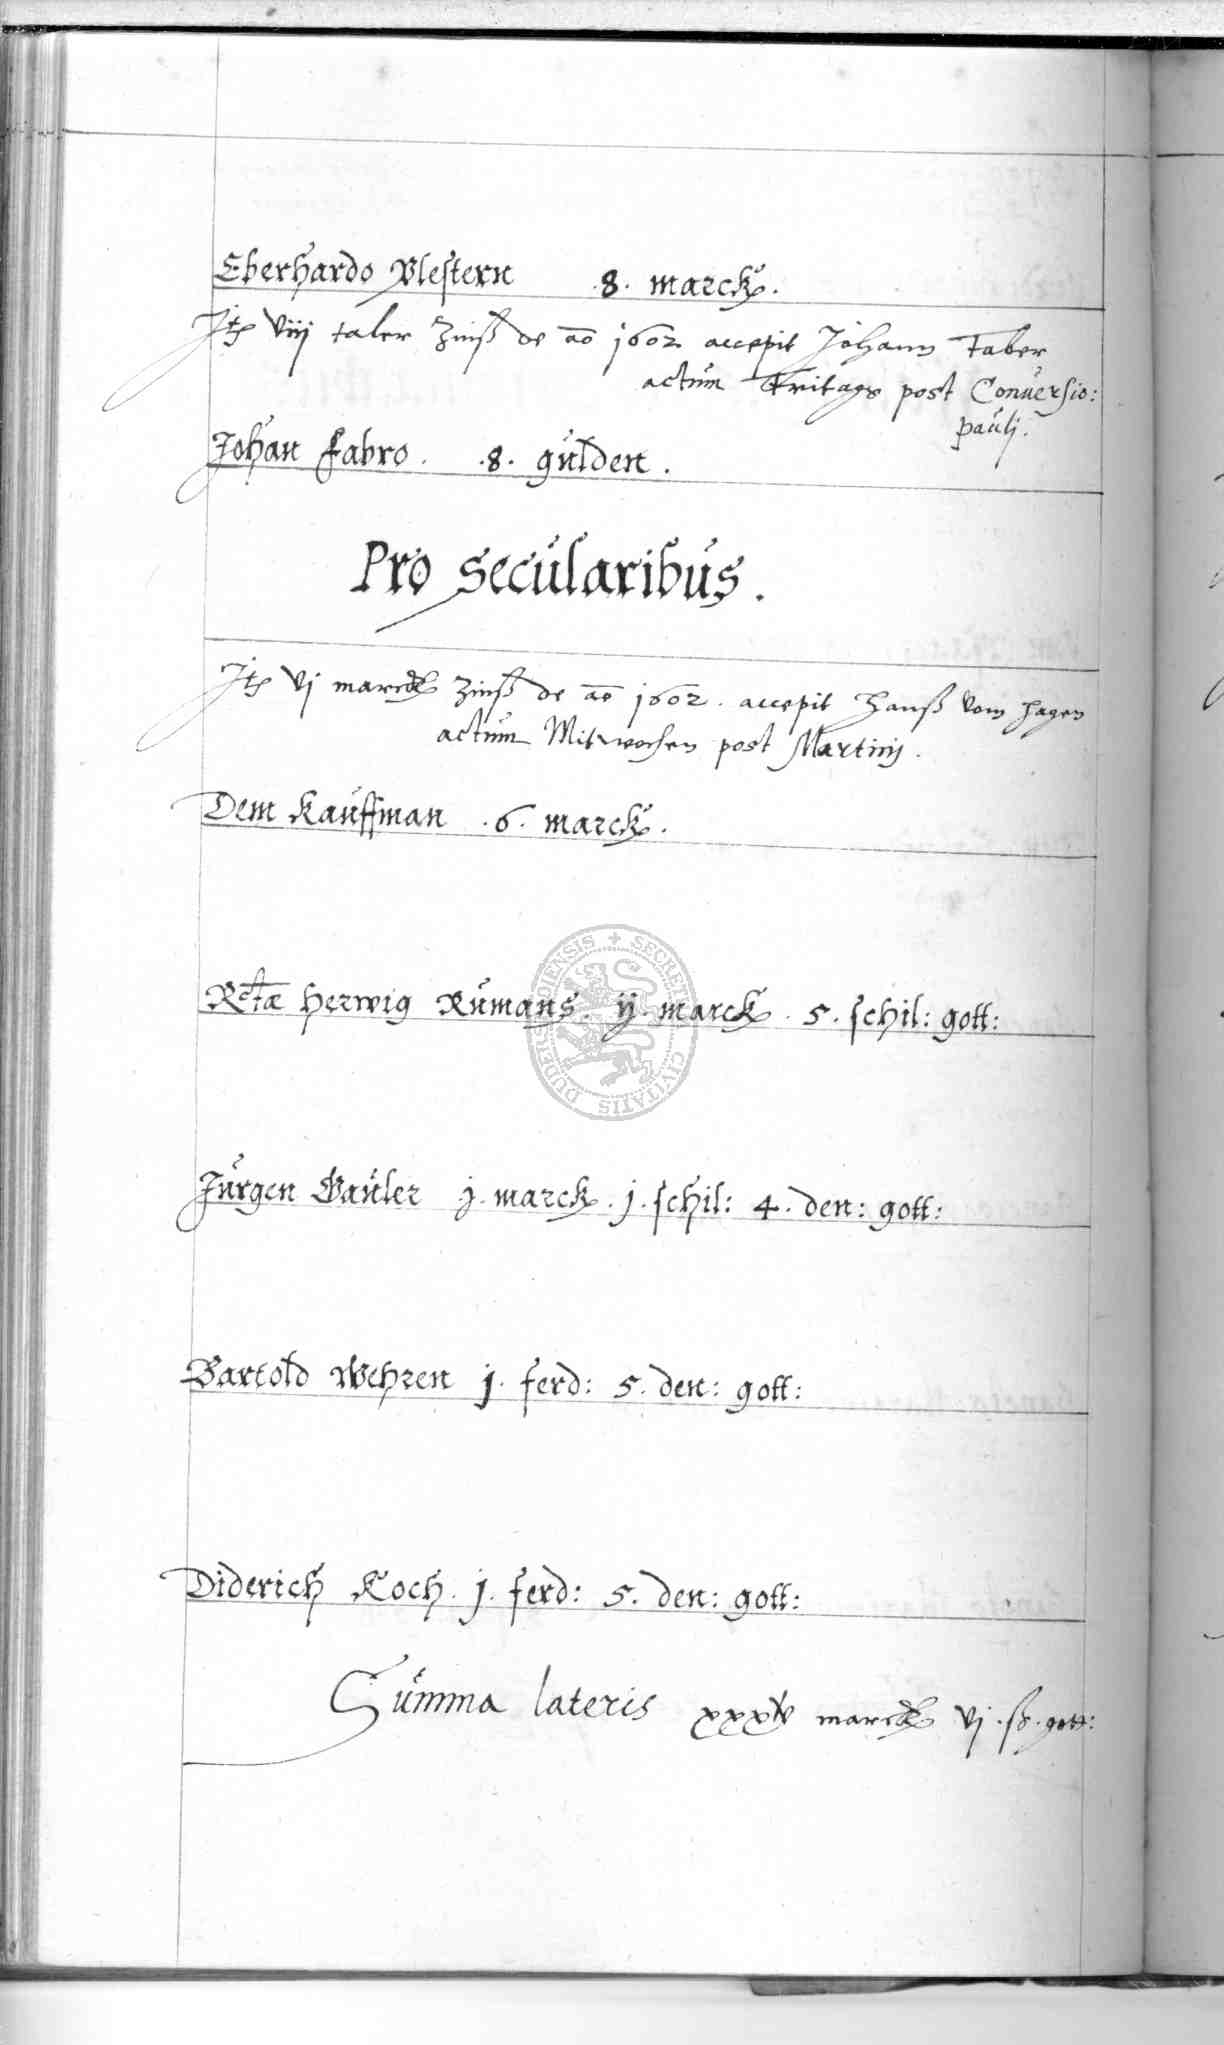 Eberhardo Vlestern .8. marck.
Jtē viij taler Zinß de aō 1602 accepit Johann Faber
actum Fritags post Conuersio:
pauli.
Johan Fabro . .8. gulden .
Pro secularibus .
Jtē vj marck Zinß de aō 1602 . accepit Hanß vom Hagen
actum Mitwochen post Martinj .
Dem Kauffman .6. marck .
Herwig Rumans . ij marck . 5 . schil: gott:
Jurgen Gauler j. marck . j . schil: 4 . den: gott:
Bartold Wehren j . ferd: 5 . den: gott:
Diderich Koch . j . ferd: 5 . den: gott:
Summa lateris marck vj . ß . gott:
SECRET CIVITATIS DUDERSTADIENSIS